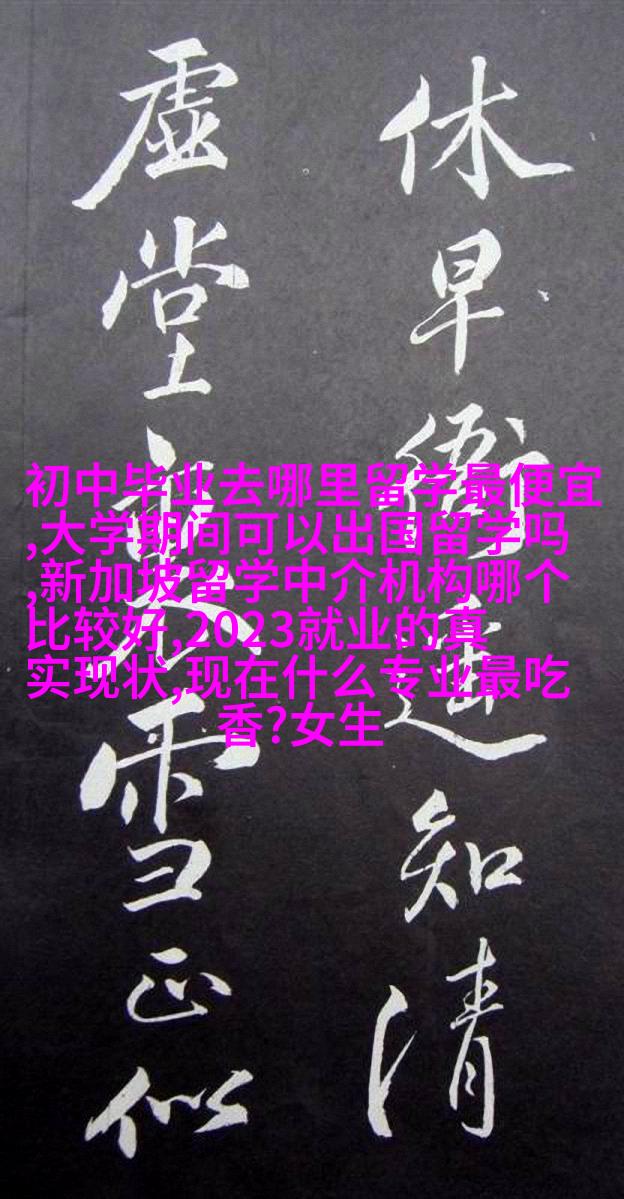 休早衙遥知清
虚堂雪正似
初中毕业去哪里留学最便宜
,大学期间可以出国留学吗
,新加坡留学中介机构哪个
比较好,2023就业的真
实现状,现在什么专业最吃
香?女生